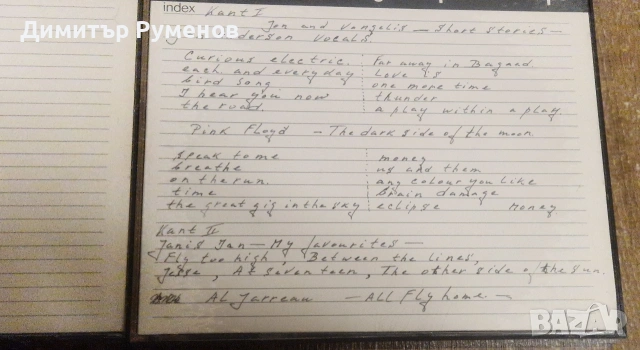 Димитър Руменов
index
Kant I
Jon and Vangelis — Short stories —
Jon Anderson Vocals.
Curious electric. Far away in Bagaad
each and everyday Love is
bird song one more time
I hear you now thunder
the road. a play within a play.
Pink Floyd — The dark side of the moon.
speak to me money
breathe us and them
on the run. any colour you like
time brain damage
the great gig in the sky eclipse Money
Kant II
Janis Ian — My favourites —
Fly too high, Between the lines,
Jesse, At seventeen, The other side of the sun.
AL Jarreau — ALL Fly home —
BAZAR
bg